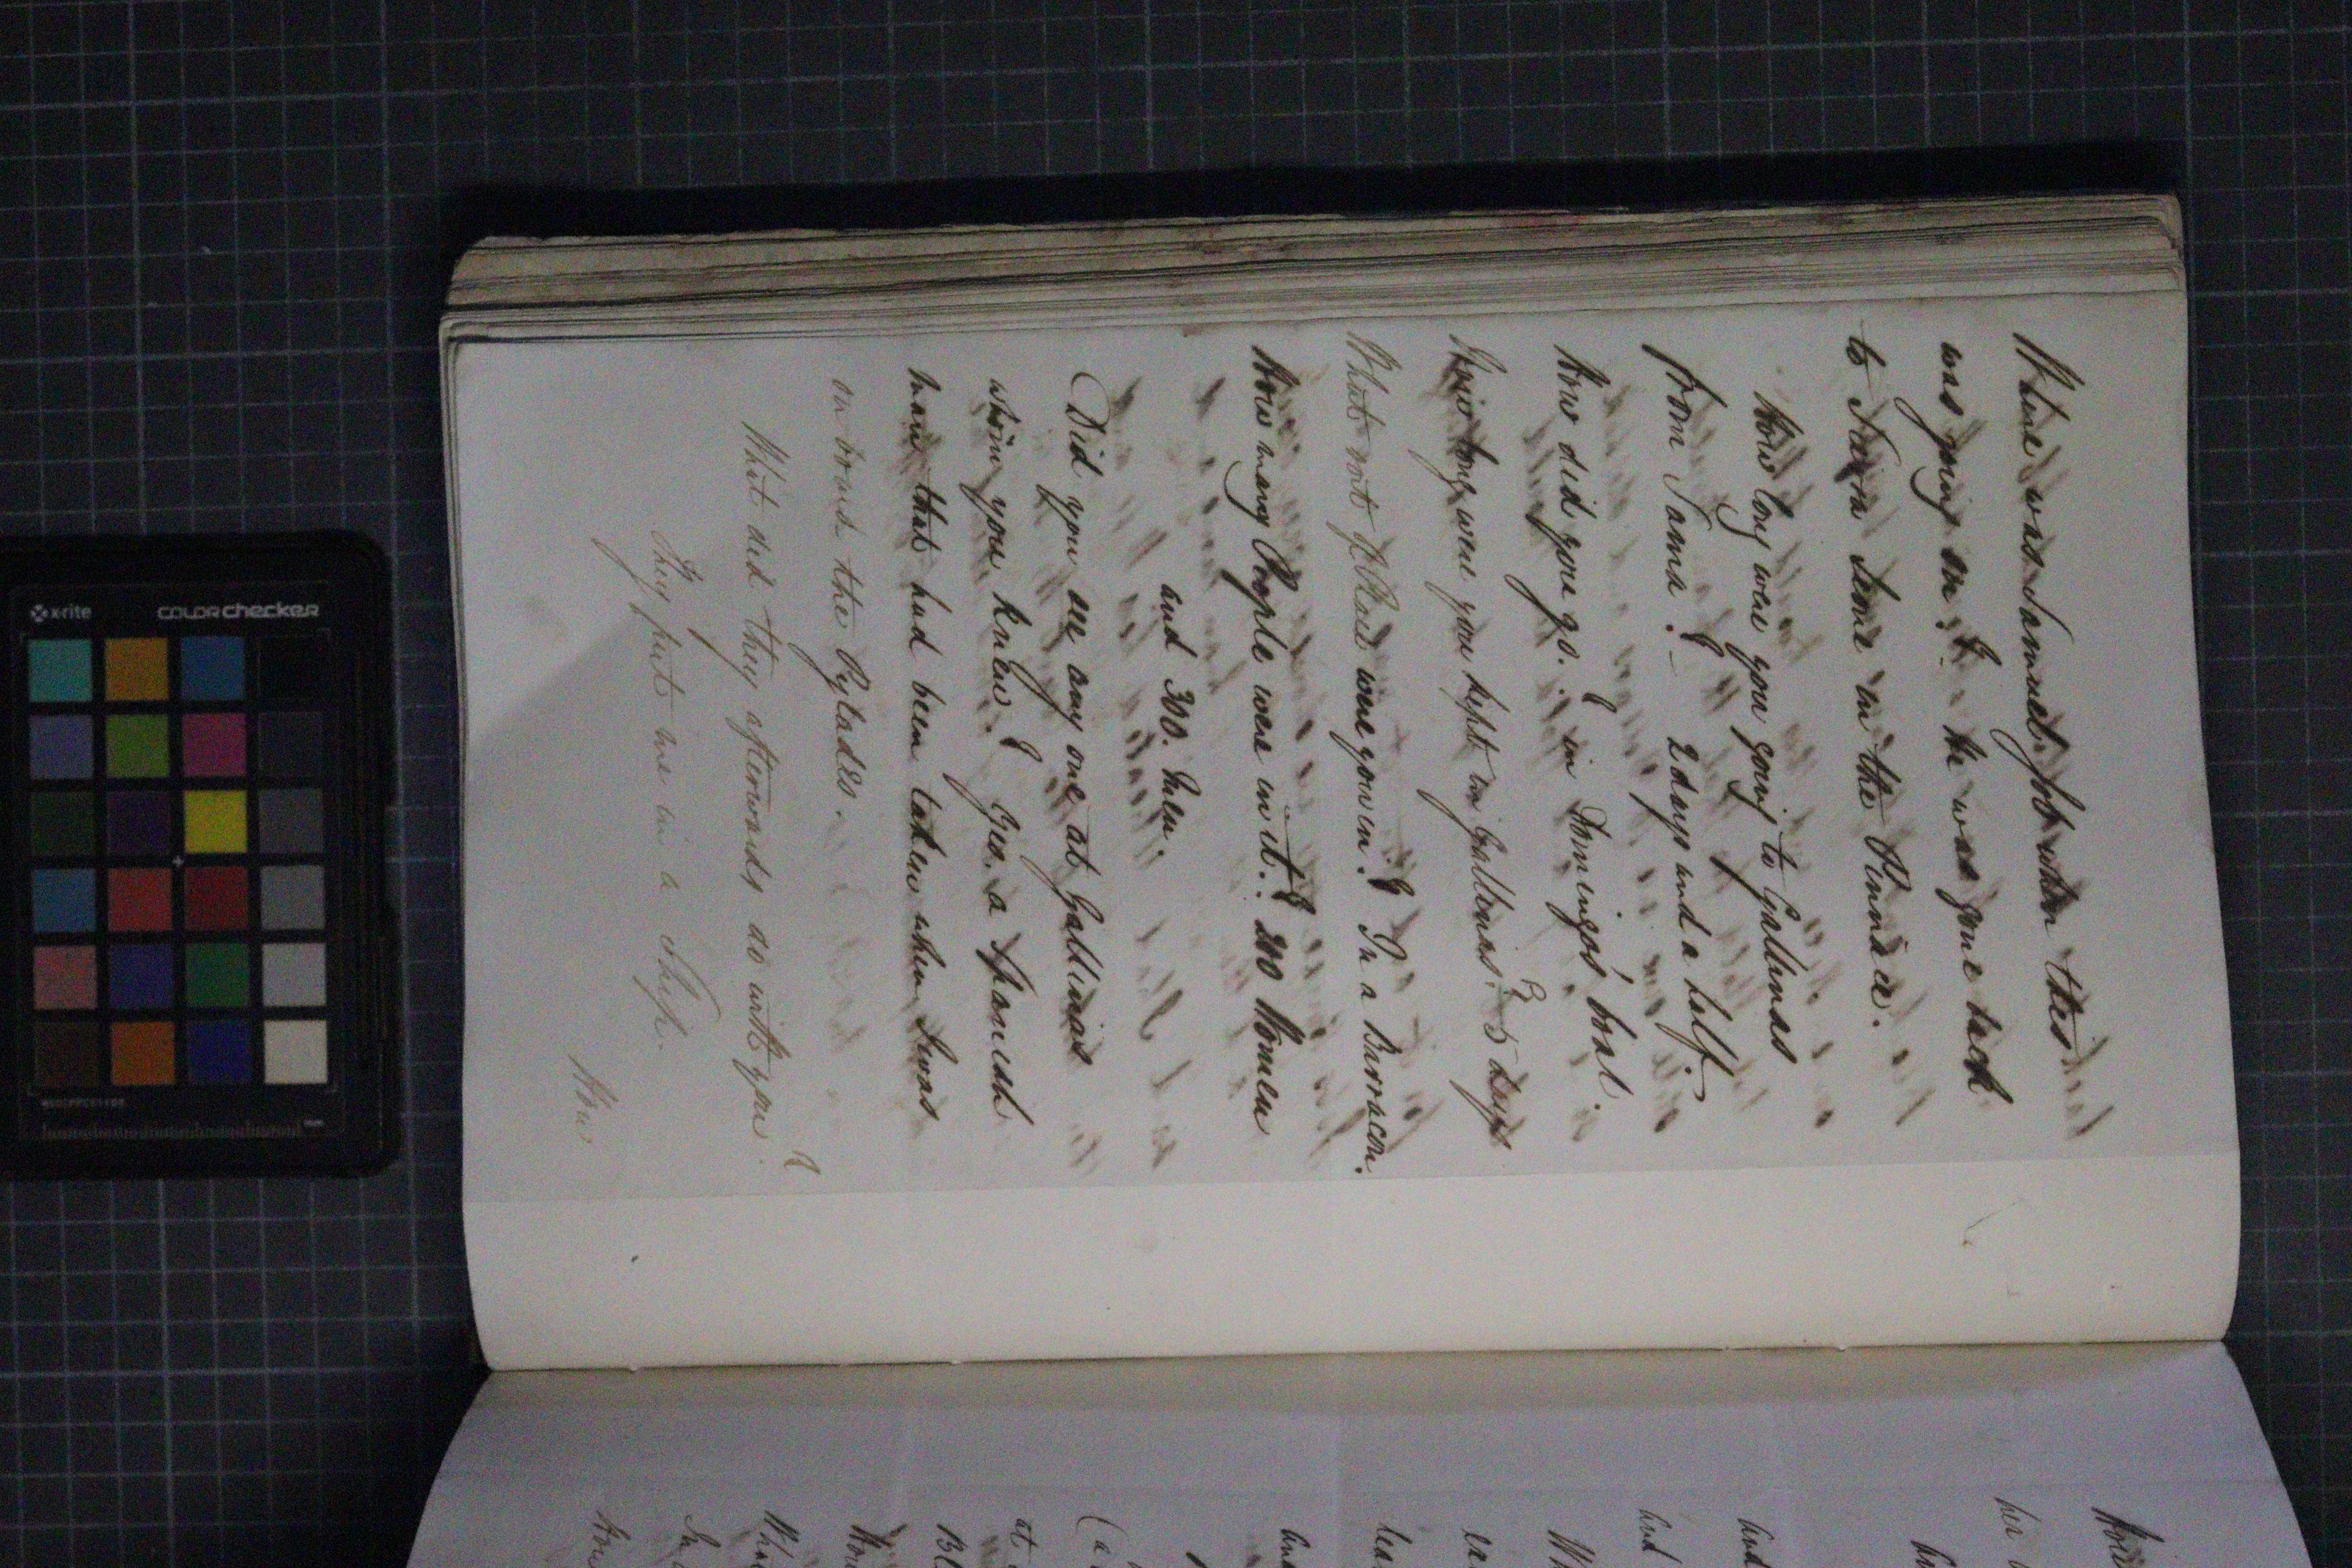 Where was Samuel Job when this
was going on? he was gone back
to Sierra Leone in the Pinnace.
How long were you going to Gallinas
from Sama? 2 days and a half.
How did you go? in Domingo's boat.
How long were you kept in Gallinas? 5 days
What sort of Place were you in? In a Barracon.
How many People were in it? 200 Women
and 300. Men.
Did you see any one at Gallinas
whom you knew? Yes. a Spanish
man that had been taken when I was
on board the Pylades.
What did they afterwards do with you?
They put me in a Ship.
How
How
her
at
What
x-rite
colorchecker